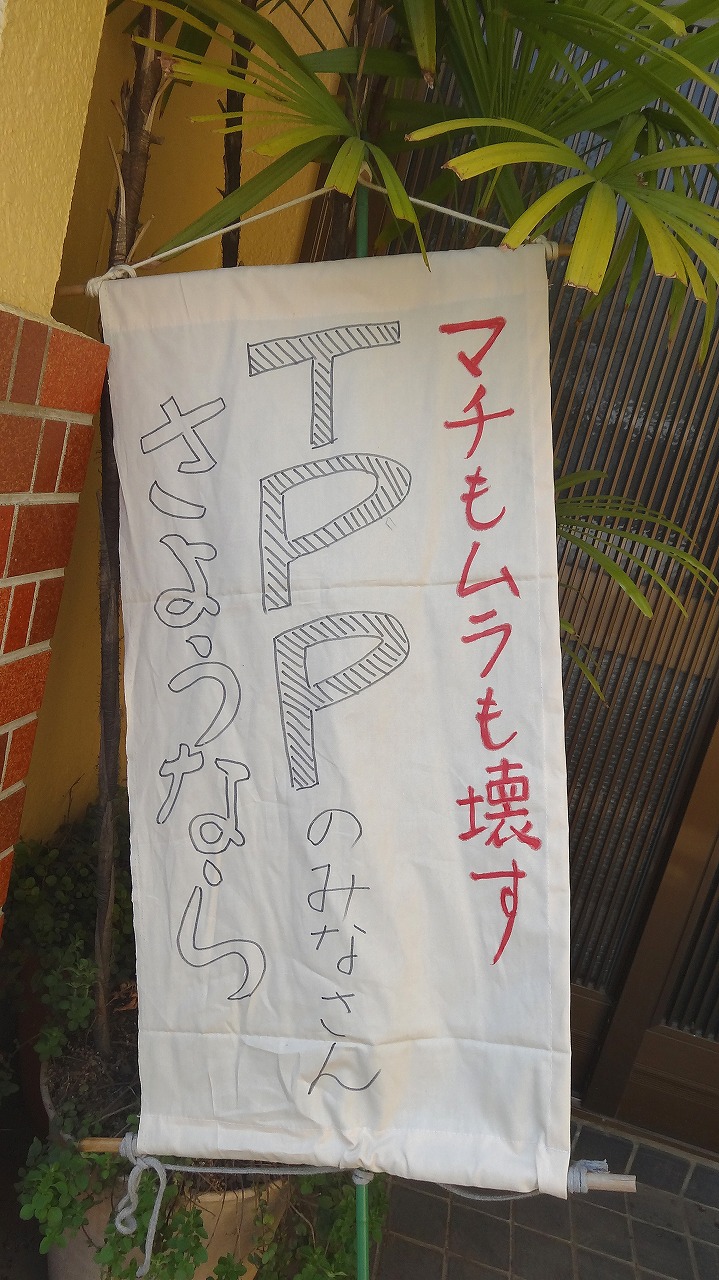 マチもムラも壊す
TPPのみなさん
さようなら